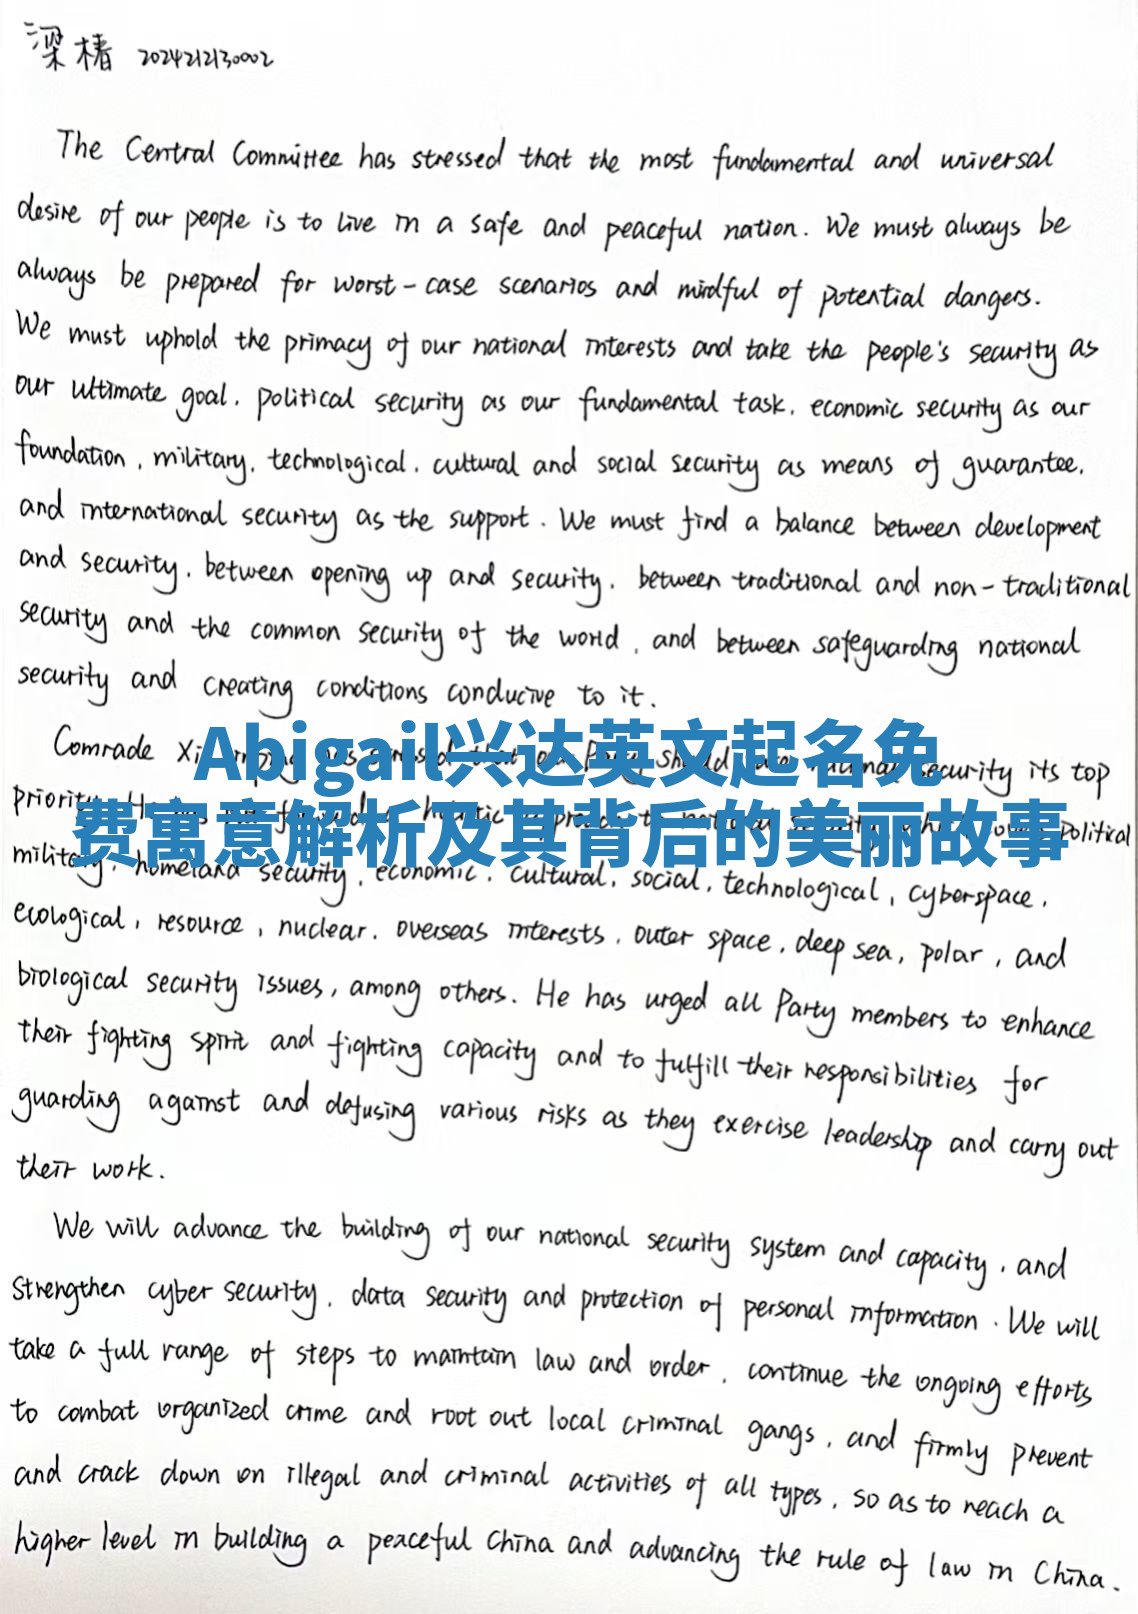 梁椿 2024212130002
The Central Committee has stressed that the most fundamental and universal
desire of our people is to live in a safe and peaceful nation. We must always be
always be prepared for worst-case scenarios and mindful of potential dangers.
We must uphold the primacy of our national interests and take the people's security as
our ultimate goal, political security as our fundamental task, economic security as our
foundation, military, technological, cultural and social security as means of guarantee,
and international security as the support. We must find a balance between development
and security, between opening up and security, between traditional and non-traditional
security and the common security of the world, and between safeguarding national
security and creating conditions conducive to it.
Comrade security its top
Abigail兴达英文起名免
priority political
费寓意解析及其背后的美丽故事
military, homeland security, economic, cultural, social, technological, cyberspace,
ecological, resource, nuclear, overseas interests, outer space, deep sea, polar, and
biological security issues, among others. He has urged all Party members to enhance
their fighting spirit and fighting capacity and to fulfill their responsibilities for
guarding against and defusing various risks as they exercise leadership and carry out
their work.
We will advance the building of our national security system and capacity, and
strengthen cyber security, data security and protection of personal information. We will
take a full range of steps to maintain law and order, continue the ongoing efforts
to combat organized crime and root out local criminal gangs, and firmly prevent
and crack down on illegal and criminal activities of all types, so as to reach a
higher level in building a peaceful China and advancing the rule of law in China.